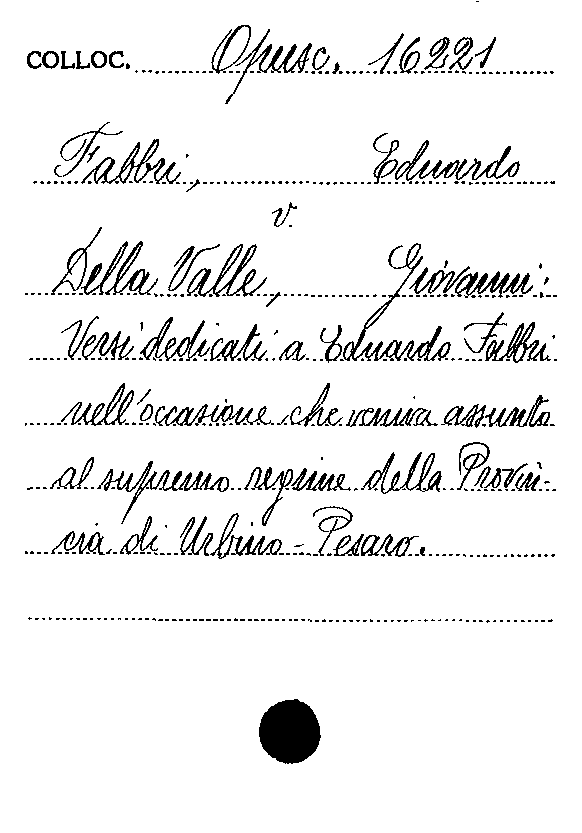 COLLOC. Opusc. 16221
Fabbri, Eduardo
v.
Della Valle, Giovanni:
Versi dedicati a Eduardo Fabbri
nell'occasione che veniva assunto
al supremo regime della Provin-
cia di Urbino-Pesaro.